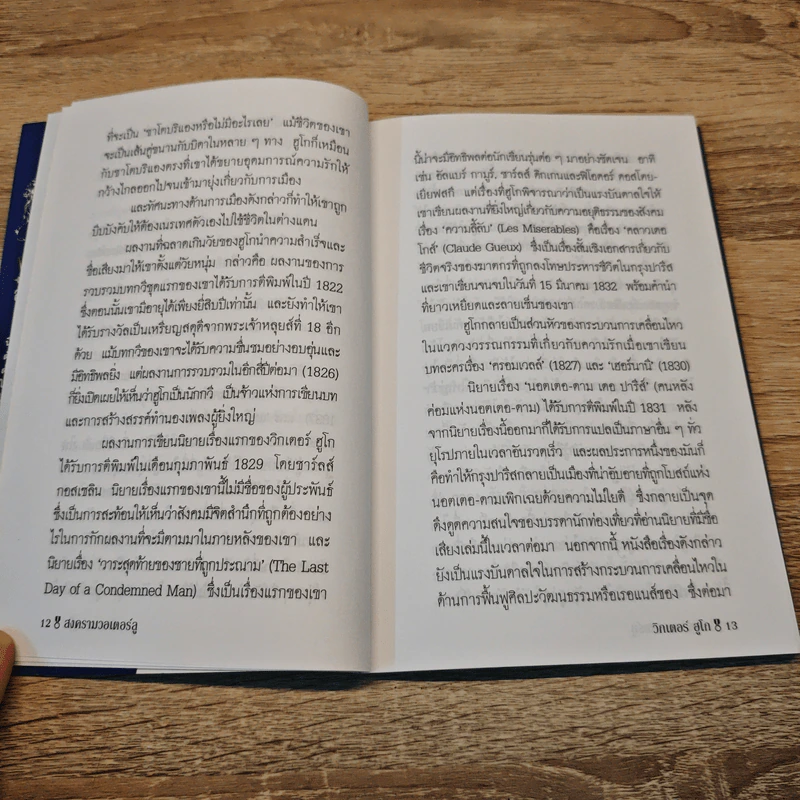 ที่จะเป็น 'ชาโตบริแองหรือไม่มีอะไรเลย' แม้ชีวิตของเขา
จะเป็นเส้นคู่ขนานกับบิดาในหลาย ๆ ทาง ฮูโกก็เหมือน
กับชาโตบริแองตรงที่เขาได้ขยายอุดมการณ์ความรักให้
กว้างไกลออกไปจนเข้ามายุ่งเกี่ยวกับการเมือง
และทัศนะทางด้านการเมืองดังกล่าวก็ทำให้เขาถูก
บีบบังคับให้ต้องเนรเทศตัวเองไปใช้ชีวิตในต่างแดน
ผลงานที่ฉลาดเกินวัยของฮูโกนำความสำเร็จและ
ชื่อเสียงมาให้เขาตั้งแต่วัยหนุ่ม กล่าวคือ ผลงานของการ
รวบรวมบทกวีชุดแรกของเขาได้รับการตีพิมพ์ในปี 1822
ซึ่งตอนนั้นเขามีอายุได้เพียงยี่สิบปีเท่านั้น และยังทำให้เขา
ได้รับรางวัลเป็นเหรียญสดุดีจากพระเจ้าหลุยส์ที่ 18 อีก
ด้วย แม้บทกวีของเขาจะได้รับความชื่นชมอย่างอบอุ่นและ
มีอิทธิพลยิ่ง แต่ผลงานการรวบรวมในอีกสี่ปีต่อมา (1826)
ก็ยิ่งเปิดเผยให้เห็นว่าฮูโกเป็นนักกวี เป็นจ้าวแห่งการเขียนบท
และการสร้างสรรค์ทำนองเพลงผู้ยิ่งใหญ่
ผลงานการเขียนนิยายเรื่องแรกของวิกเตอร์ ฮูโก
ได้รับการตีพิมพ์ในเดือนกุมภาพันธ์ 1829 โดยชาร์ลส์
กอสเซลิน นิยายเรื่องแรกของเขานี้ไม่มีชื่อของผู้ประพันธ์
ซึ่งเป็นการสะท้อนให้เห็นว่าสังคมมีจิตสำนึกที่ถูกต้องอย่าง
ไรในการกักผลงานที่จะมีตามมาในภายหลังของเขา และ
นิยายเรื่อง 'วาระสุดท้ายของชายที่ถูกประณาม' (The Last
Day of a Condemned Man) ซึ่งเป็นเรื่องแรกของเขา
12 สงครามวอเตอร์ลู
นี้น่าจะมีอิทธิพลต่อนักเขียนรุ่นต่อ ๆ มาอย่างชัดเจน อาทิ
เช่น อัลแบร์ กามูร์, ชาร์ลส์ ดิกเกนและฟิโอดอร์ ดอสโตย-
เยียฟสกี แต่เรื่องที่ฮูโกพิจารณาว่าเป็นแรงบันดาลใจให้
เขาเขียนผลงานที่ยิ่งใหญ่เกี่ยวกับความยุติธรรมของสังคม
เรื่อง 'ความลี้ลับ' (Les Miserables) คือเรื่อง 'คลาวเดอ
โกส์' (Claude Gueux) ซึ่งเป็นเรื่องสั้นเชิงเอกสารเกี่ยวกับ
ชีวิตจริงของฆาตกรที่ถูกลงโทษประหารชีวิตในกรุงปารีส
และเขาเขียนจนจบในวันที่ 15 มีนาคม 1832 พร้อมคำนำ
ที่ยาวเหยียดและลายเซ็นของเขา
ฮูโกกลายเป็นส่วนหัวของกระบวนการเคลื่อนไหว
ในแวดวงวรรณกรรมที่เกี่ยวกับความรักเมื่อเขาเขียน
บทละครเรื่อง 'ครอมเวลล์' (1827) และ 'เฮอร์นานี' (1830)
นิยายเรื่อง 'นอตเตอ-ดาม เดอ ปารีส์' (คนหลัง
ค่อมแห่งนอตเตอ-ดาม) ได้รับการตีพิมพ์ในปี 1831 หลัง
จากนิยายเรื่องนี้ออกมาก็ได้รับการแปลเป็นภาษาอื่น ๆ ทั่ว
ยุโรปภายในเวลาอันรวดเร็ว และผลประการหนึ่งของมันก็
คือทำให้กรุงปารีสกลายเป็นเมืองที่น่าอับอายที่ถูกโบสถ์แห่ง
นอตเตอ-ดามเพิกเฉยด้วยความไม่ใยดี ซึ่งกลายเป็นจุด
ดึงดูดความสนใจของบรรดานักท่องเที่ยวที่อ่านนิยายที่มีชื่อ
เสียงเล่มนี้ในเวลาต่อมา นอกจากนี้ หนังสือเรื่องดังกล่าว
ยังเป็นแรงบันดาลใจในการสร้างกระบวนการเคลื่อนไหวใน
ด้านการฟื้นฟูศิลปะวัฒนธรรมหรือเรอแนส์ซอง ซึ่งต่อมา
วิกเตอร์ ฮูโก 13